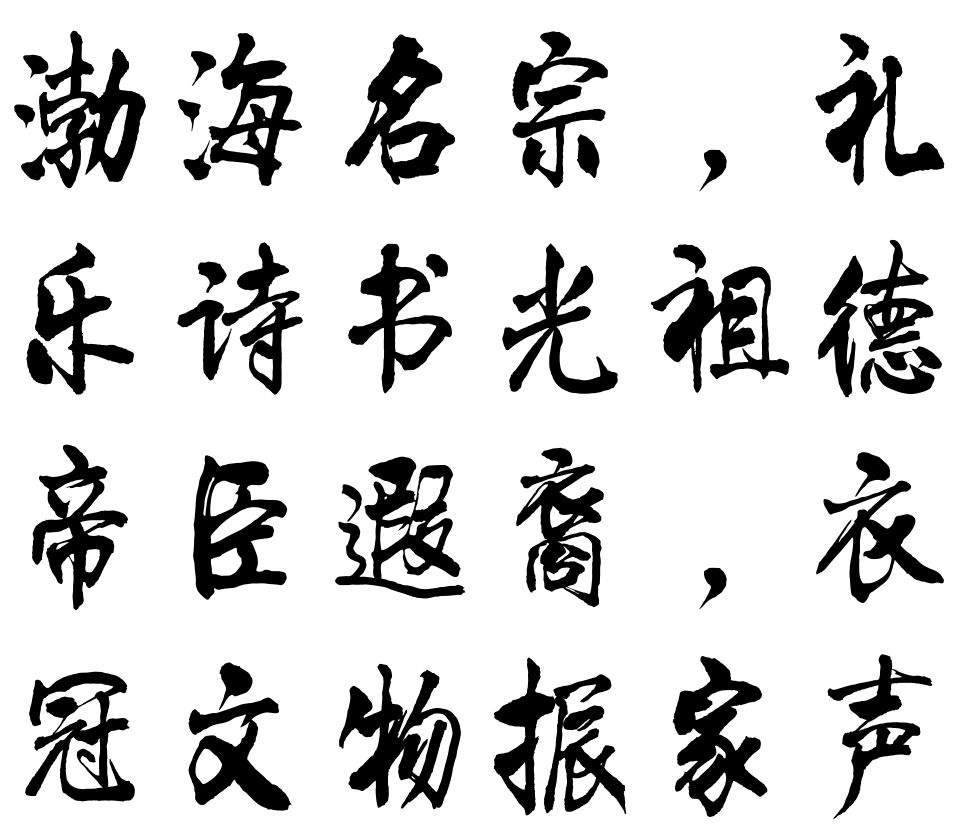 渤海名宗，礼
乐诗书光祖德
帝臣遐裔，衣
冠文物振家声